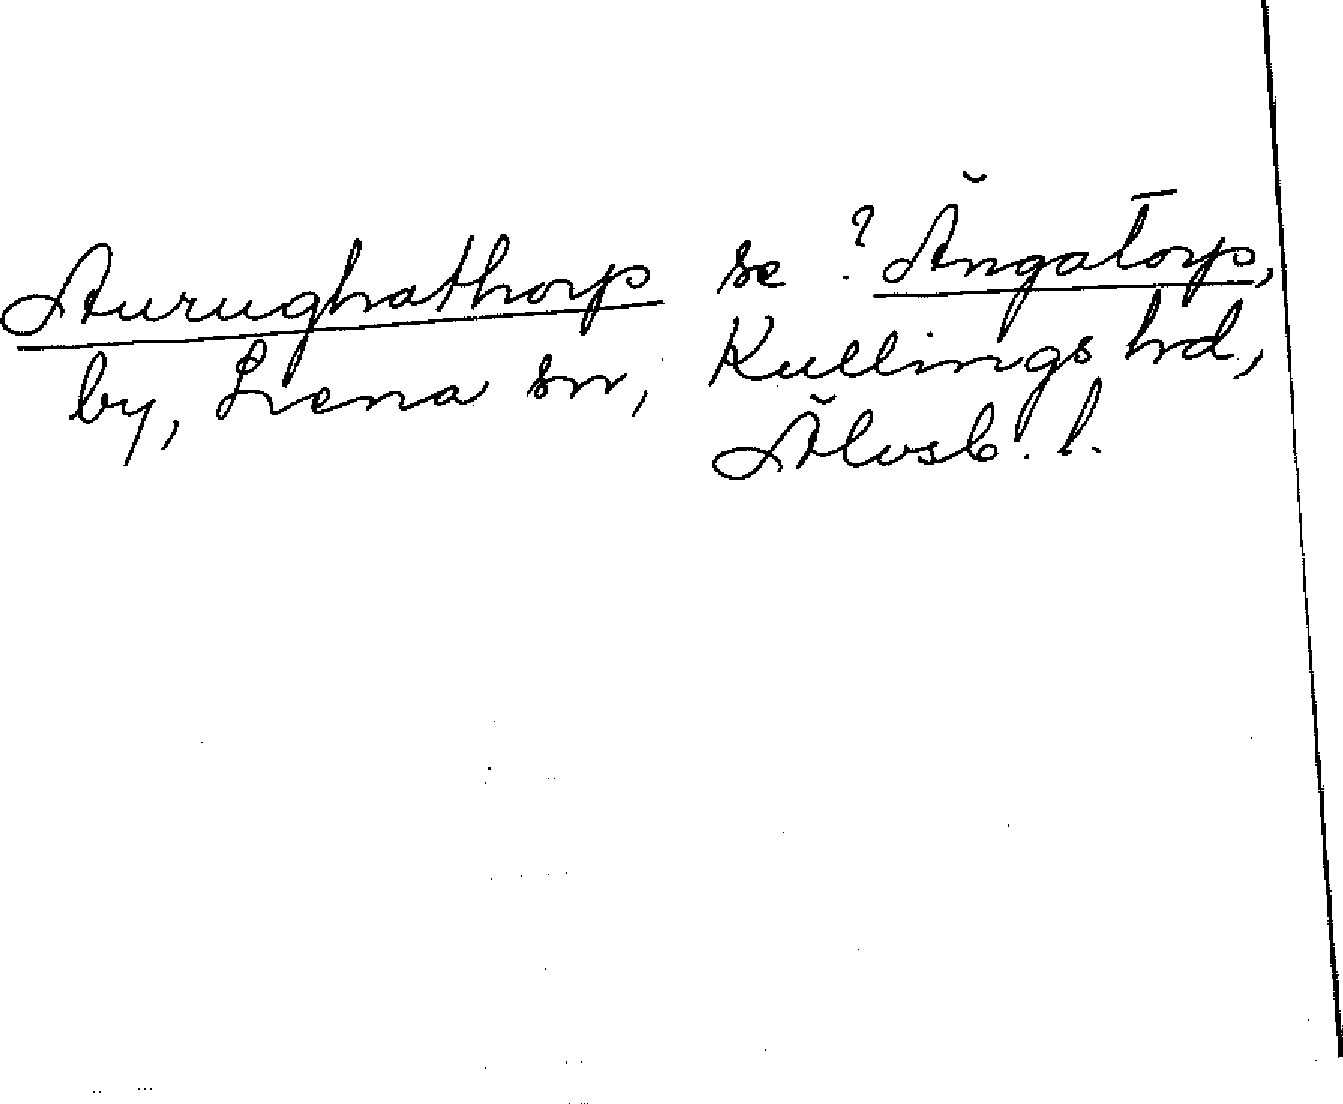 Aurughathorp se ? Ängatorp,
by, Lena sn, Kullings hrd,
Älvsb. l.